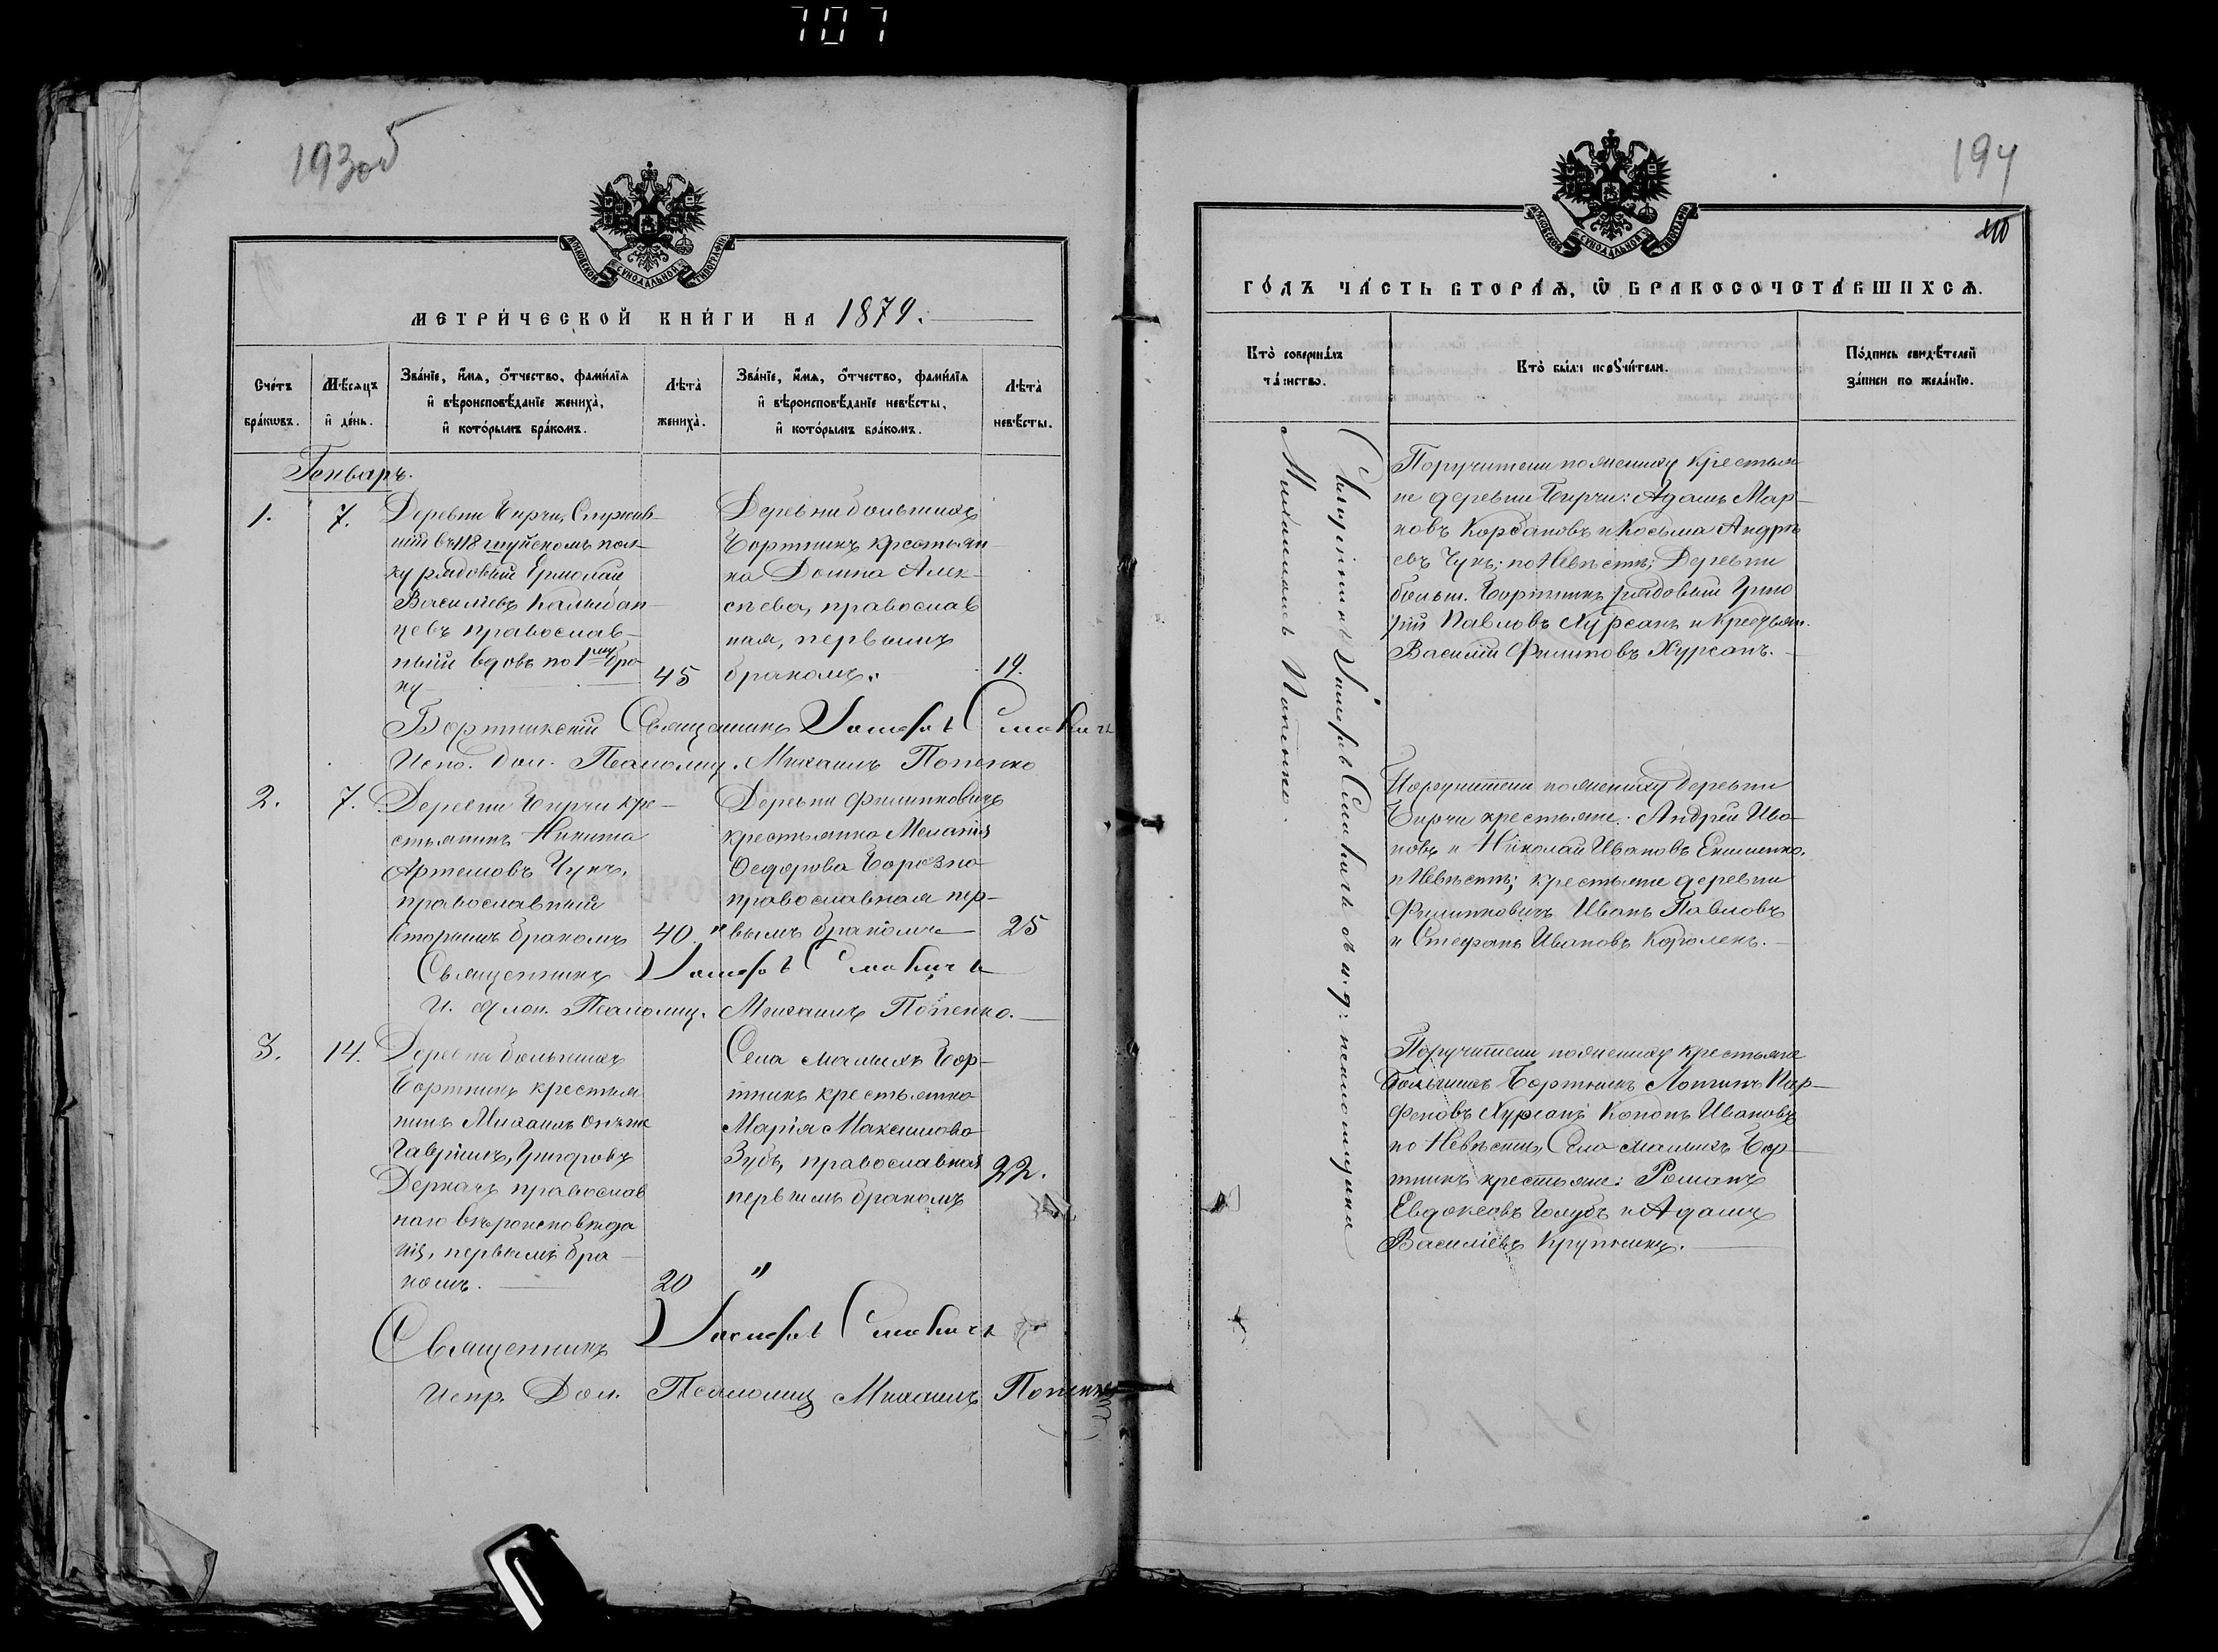 707
193об
МОСКОВСКОЙ СѴНОДАЛЬНОЙ ТИПОГРАФІИ
МЕТРИ́ЧЕСКОЙ КНИ́ГИ НА 1879.
Сче́тъ бра́кѡвъ.
Мѣ́сяцъ и҆ де́нь.
Зва́нїе, и҆́мѧ, ѻ҆́тчество, фами́лїѧ и҆ вѣроисповѣ́данїе жениха̀, и҆ кото́рымъ бра́комъ.
Лѣ́та жениха̀.
Зва́нїе, и҆́мѧ, ѻ҆́тчество, фами́лїѧ и҆ вѣроисповѣ́данїе невѣ́сты, и҆ кото́рымъ бра́комъ.
Лѣ́та невѣ́сты.
Генварь.
1.
7.
Деревни Бирчи, Служив-
шій въ 118 шуйскомъ пол-
ку рядовый Ермолай
Василіевъ
цевъ православ-
ный вдовъ по 1му бра-
ку
45
Деревни большихъ
Бортникъ крестьян-
ка Домна Алек-
сѣева, православ
ная, первымъ
бракомъ.
19.
Бортникскій Священникъ
Испо. дол. Псаломщ. Михаилъ Попенко
2.
7.
Деревни Бирчи кре-
стьянинъ Никита
Артемовъ Чукъ,
православный
вторымъ бракомъ
40
Деревни Филипковичъ
крестьянка Меланія
Ѳедорова Борозна
православная пер-
"вымъ бракомъ
25
Священникъ
И. д лон. Псаломщ. Михаилъ Попенко.
3.
14.
Деревни большихъ
Бортникъ крестья
нинъ Михаилъ онъ же
Гавріилъ, Григоровъ
Деркачъ православ
наго вѣроисповѣда
нія, первымъ бра-
комъ.
20
Села малыхъ Бор-
тникъ крестьянка
Марія Максимова
Зубъ, православная
первымъ бракомъ
"
22.
Священникъ
Испр. Дол. Псаломщ Михаилъ Попенко
194
МОСКОВСКОЙ СѴНОДАЛЬНОЙ ТИПОГРАФІИ
ГО́ДЪ ЧА́СТЬ ВТОРА́Ѧ, Ѽ БРАКОСОЧЕТА́ВШИХСѦ.
Кто̀ соверша́лъ та́инство.
Кто̀ бы́ли порꙋчи́тели.
По́дпись свидѣ́телей за́писи по жела́нїю.
Михаиломъ Попенко.
Поручители по женихѣ крестья
не деревни Бирчи: Адамъ Мар-
ковъ Корбановъ и Косьма Андре
евъ Чукъ; по Невѣстѣ; Деревни
больш. Бортникъ рядовый Григо
рій Павловъ Хурсанъ и Крестьян.
Василій Филиповъ Хурсанъ.
Поручители по женихѣ Деревни
Бирчи крестьяне: Андрей Ива-
новъ и Николай Ивановъ Екименко.
и Невѣстѣ; крестьяне деревни
Филипковичъ Иванъ Павловъ
и Стефанъ Ивановъ Короленъ.
Поручители по женихѣ крестьяне
Большихъ Бортникъ Логинъ Пар-
феновъ Хурсанъ Кононъ Ивановъ
по Невѣстѣ, Села малыхъ Бор-
тникъ крестьяне: Романъ
Евдокеовъ Голубъ и Адамъ
Василіевъ Крупникъ.